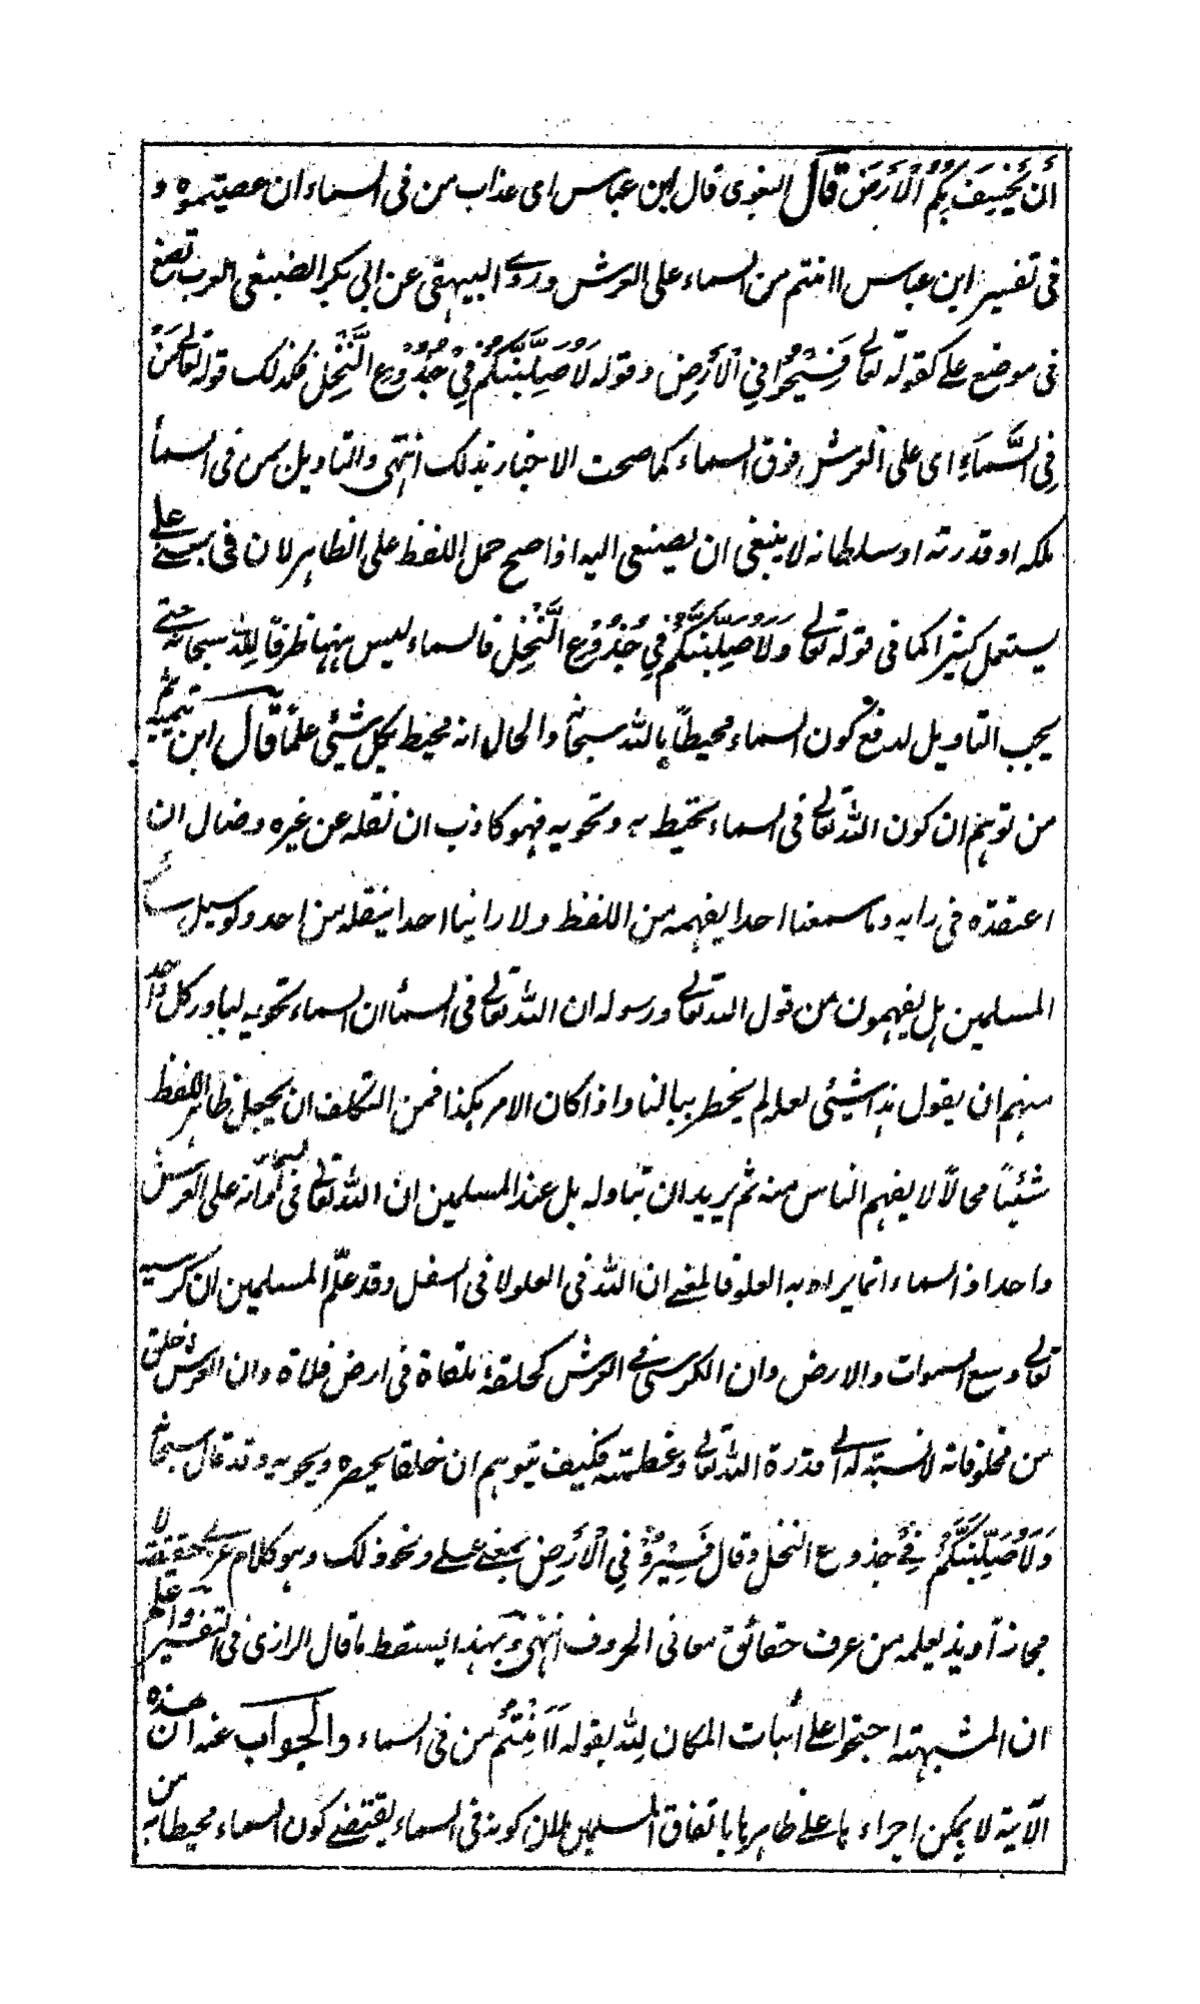 أَن يَخْسِفَ بِكُمُ الْأَرْضَ قال البغوى قال ابن عباس اى عذاب من فى السماء ان عصيتموه و
فى تفسير ابن عباس اامنتم من السماء على العرش وروے البيهقى عن ابى بكر الضبغى العرب تضع
فى موضع على كقوله تعالے فَسِيحُوا فِي الْأَرْضِ وقوله لَأُصَلِّبَنَّكُمْ فِي جُذُوعِ النَّخْلِ فكذلك قوله تعالے مَنْ
فِي السَّمَاءِ اى على العرش فوق السماء كما صحت الاخبار بذلك انتهى والتاويل بمن فى السماء
ملكه او قدرته او سلطانه لا ينبغى ان يصغى اليه اذا صح حمل اللفظ على الظاهر لان فى بمعنے علے
يستعمل كثيرا كما فى قوله تعالے وَلَأُصَلِّبَنَّكُمْ فِي جُذُوعِ النَّخْلِ فالسماء ليس ههنا ظرفًا لِلّٰه سبحانه حتے
يجب التاويل لدفع كون السماء محيطاً بالله سبحانه والحال انه محيط بكل شيئى علما قال ابن تيميه
من توهم ان كون الله تعالے فى السماء تحيط به وتحويه فهو كاذب ان نقله عن غيره وضال ان
اعتقده فى رايه وما سمعنا احدا يفهمه من اللفظ ولا راينا احدا ينقله من احد ولو سيل سائر
المسلمين هل يفهمون من قول الله تعالے ورسوله ان الله تعالے فى السماء ان السماء تحويه لبادر كل واحد
منهم ان يقول هذا شيئى لعله لم يخطر ببالنا واذا كان الامر هكذا فمن التكلف ان يجعل ظاهر اللفظ
شئياً محالاً لا يفهم الناس منه ثم يريد ان تياوله بل عند المسلمين ان الله تعالے فى السماء وانه على العرش
واحدا ذ السماء انما يراد به العلو فالمعنے ان الله فى العلو لا فى السفل وقد علّم المسلمين ان كرسيه
تعالے وسع السموات والارض وان الكرسى فے العرش كحلقة ملقاة فى ارض فلاة وان العرش خلق
من مخلوقاته لا نسبة له الے قدرة الله تعالے وعظمته فكيف يتوهم ان خلقا يحصره ويحويه وقد قال سبحانه
وَلَأُصَلِّبَنَّكُمْ فِے جذوع النخل وقال فَسِيرُوْا فِي الْأَرْضِ بمعنے علے ونحو ذلك وهو كلام عربے حقيقة لا
مجازا وهذ يعلمه من عرف حقائق معانى الحروف انتهى وبهذا يسقط ما قال الرازى فى التفسير واعلم
ان المشبهة احتجوا على اثبات المكان لِلّٰه بقوله ءَاَمِنْتُمْ من فى السماء والجواب عنه ان هذه
الآية لا يمكن اجراءها علے ظاهرها باتفاق المسلمين لان كونه فى السماء يقتضے كون السماء محيطا به من